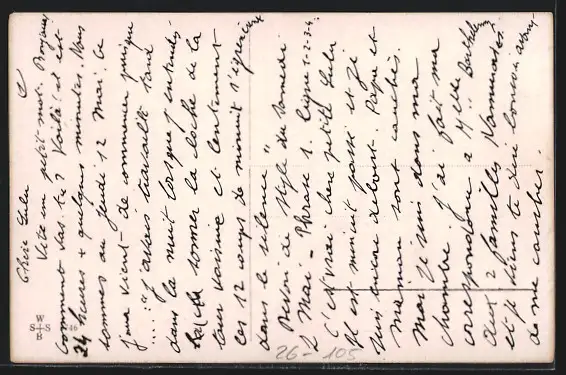 Chère Lulu
Vite un petit mot. Bonjour
Comment vas tu ? Voilà il est
24 heures + quelques minutes. Nous
sommes au jeudi 12 Mai. Ce
jour vient de commencer puisque
...."J'avais travaillé tard
dans la nuit lorsque j'entendis
sonner la cloche de la
tour voisine et lentement
ces 12 coups de minuit s'égrenèrent
dans le silence"
Devoir de Style du Samedi
7 Mai - Phrase 1. Ligne 1-2-3-4.
C'est vrai chère petite Lulu
Il est minuit passé et je
suis encore debout. Papa et
maman sont couchés.
moi je suis dans ma
chambre j'ai fait ma
correspondance à Melle
aux 2 familles
et je viens te dire bonsoir avant
de me coucher.
W
S S
B
46
26-105